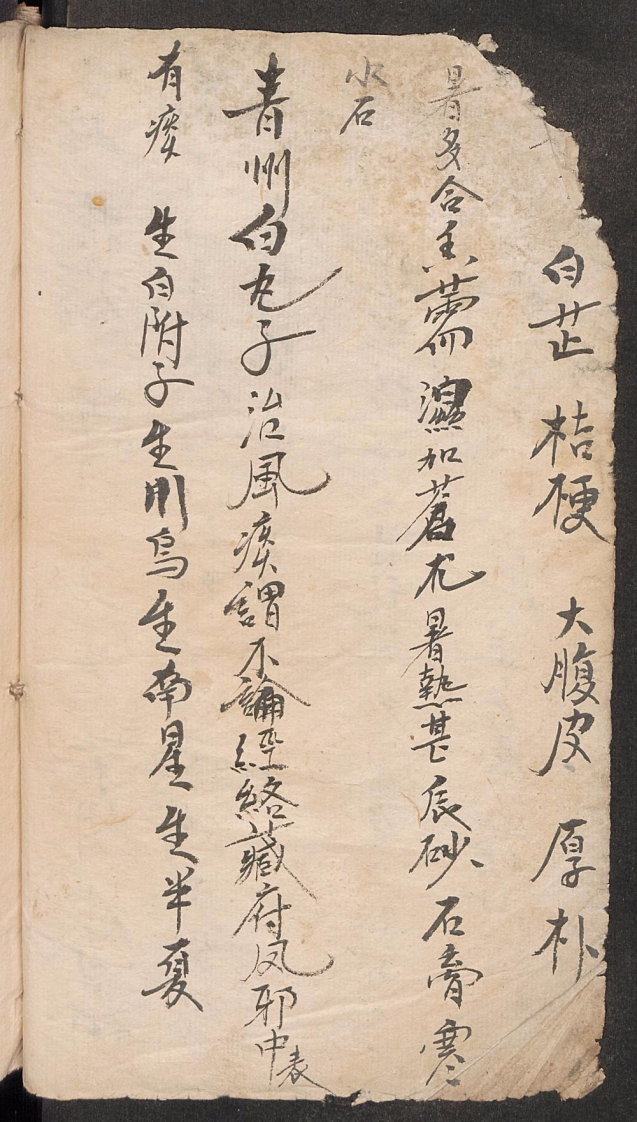 白芷 桔梗 大腹皮 厚朴
暑多合香薷 濕加蒼朮 暑熱甚辰砂石膏寒
水石
青州白丸子治風痰謂不論經絡藏府風邪中表
有痰 生白附子生川烏生南星生半夏